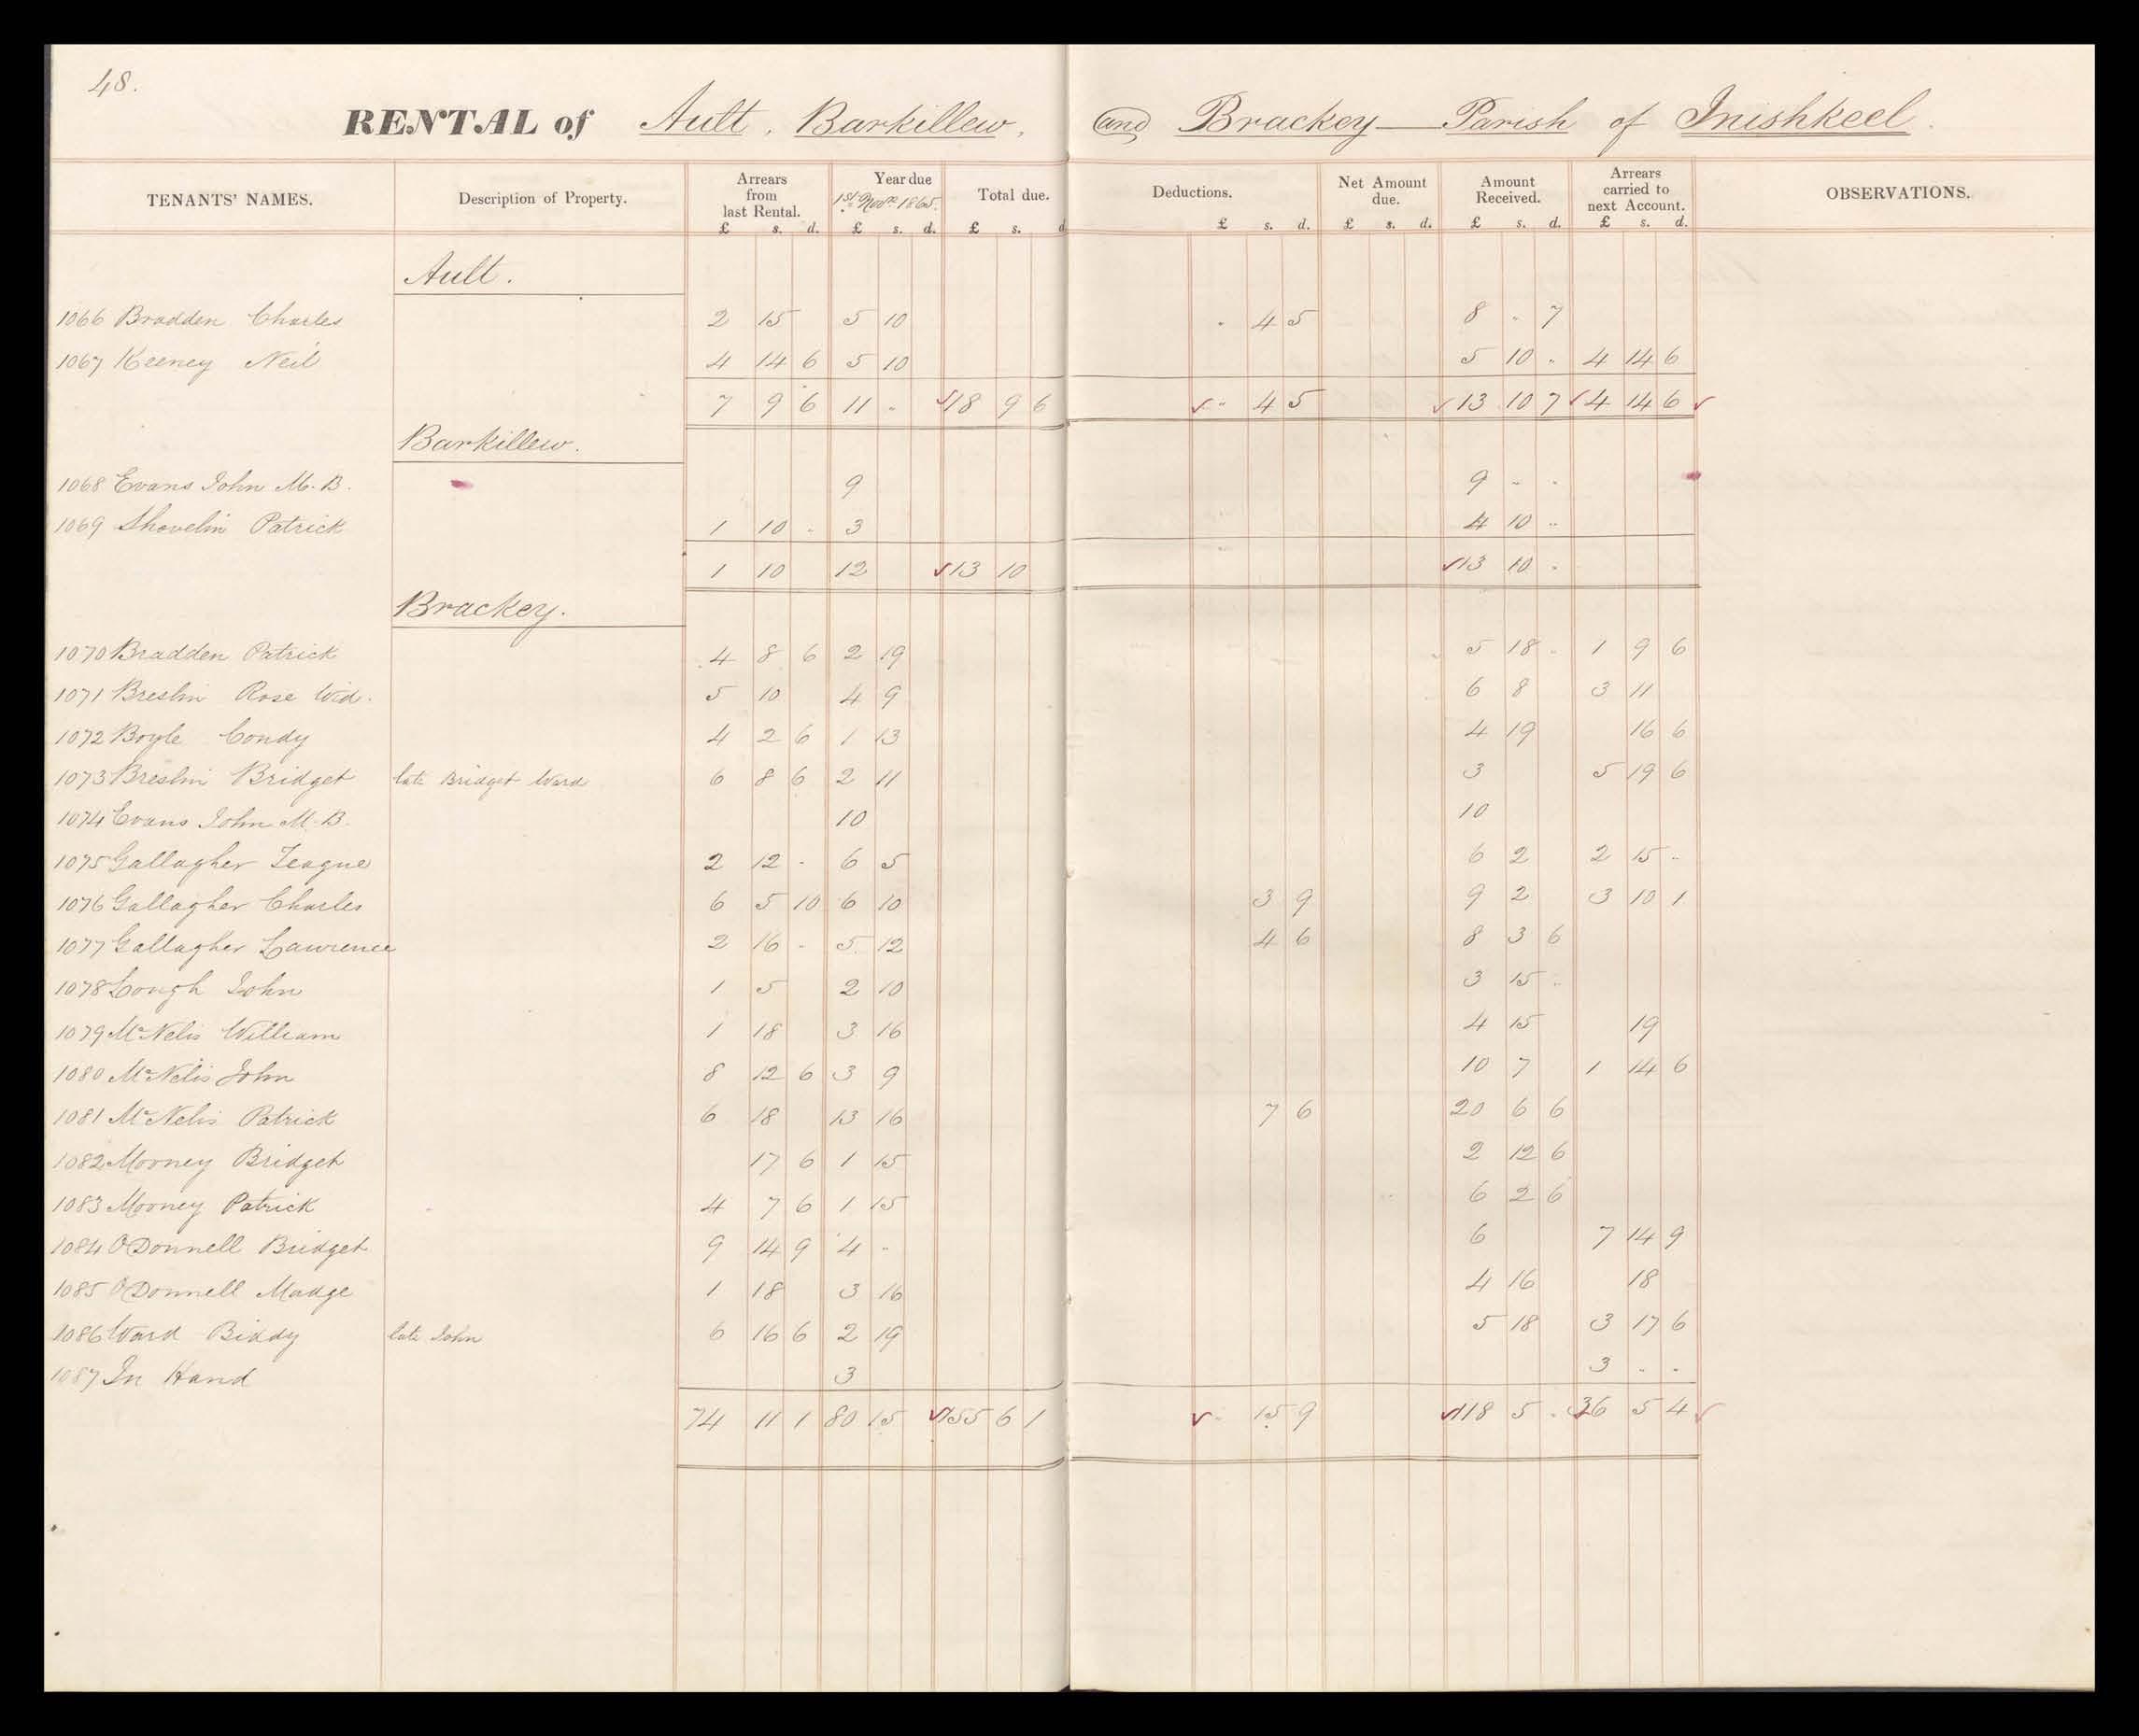 48.
RENTAL of Ault, Barkillew, and Brackey — Parish of Inishkeel.
TENANTS' NAMES. Description of Property. Arrears from last Rental. Year due 1st Novr 1865. Total due. Deductions. Net Amount due. Amount Received. Arrears carried to next Account. OBSERVATIONS.
£ s. d. £ s. d. £ s. d £ s. d. £ s. d. £ s. d. £ s. d.
Ault.
1066 Bradden Charles 2 15 5 10 " 4 5 8 " 7
1067 Keeney Neil 4 14 6 5 10 5 10 " 4 14 6
7 9 6 11 " 18 9 6 " 4 5 13 10 7 4 14 6
Barkillew.
1068 Evans John M. B. 9 9 " "
1069 Shovelin Patrick 1 10 " 3 4 10 "
1 10 12 13 10 13 10 "
Brackey.
1070 Bradden Patrick 4 8 6 2 19 5 18 " 1 9 6
1071 Breslin Rose Wid. 5 10 4 9 6 8 3 11
1072 Boyle Condy 4 2 6 1 13 4 19 16 6
1073 Breslin Bridget late Bridget Ward 6 8 6 2 11 3 5 19 6
1074 Evans John M. B. 10 10
1075 Gallagher Teague 2 12 " 6 5 6 2 2 15 "
1076 Gallagher Charles 6 5 10 6 10 3 9 9 2 3 10 1
1077 Gallagher Lawrence 2 16 " 5 12 4 6 8 3 6
1078 Lough John 1 5 2 10 3 15 "
1079 McNelis William 1 18 3 16 4 15 19
1080 McNelis John 8 12 6 3 9 10 7 1 14 6
1081 McNelis Patrick 6 18 13 16 7 6 20 6 6
1082 Mooney Bridget 17 6 1 15 2 12 6
1083 Mooney Patrick 4 7 6 1 15 6 2 6
1084 O'Donnell Bridget 9 14 9 4 " 6 7 14 9
1085 O'Donnell Madge 1 18 3 16 4 16 18
1086 Ward Biddy late John 6 16 6 2 19 5 18 3 17 6
1087 In Hand 3 3 " "
74 11 1 80 15 155 6 1 " 15 9 118 5 " 36 5 4